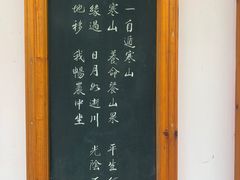 一自遁寒山
寒山 養命餐山果 平生
緣過 日月如逝川 光陰
地移 我暢巖中坐